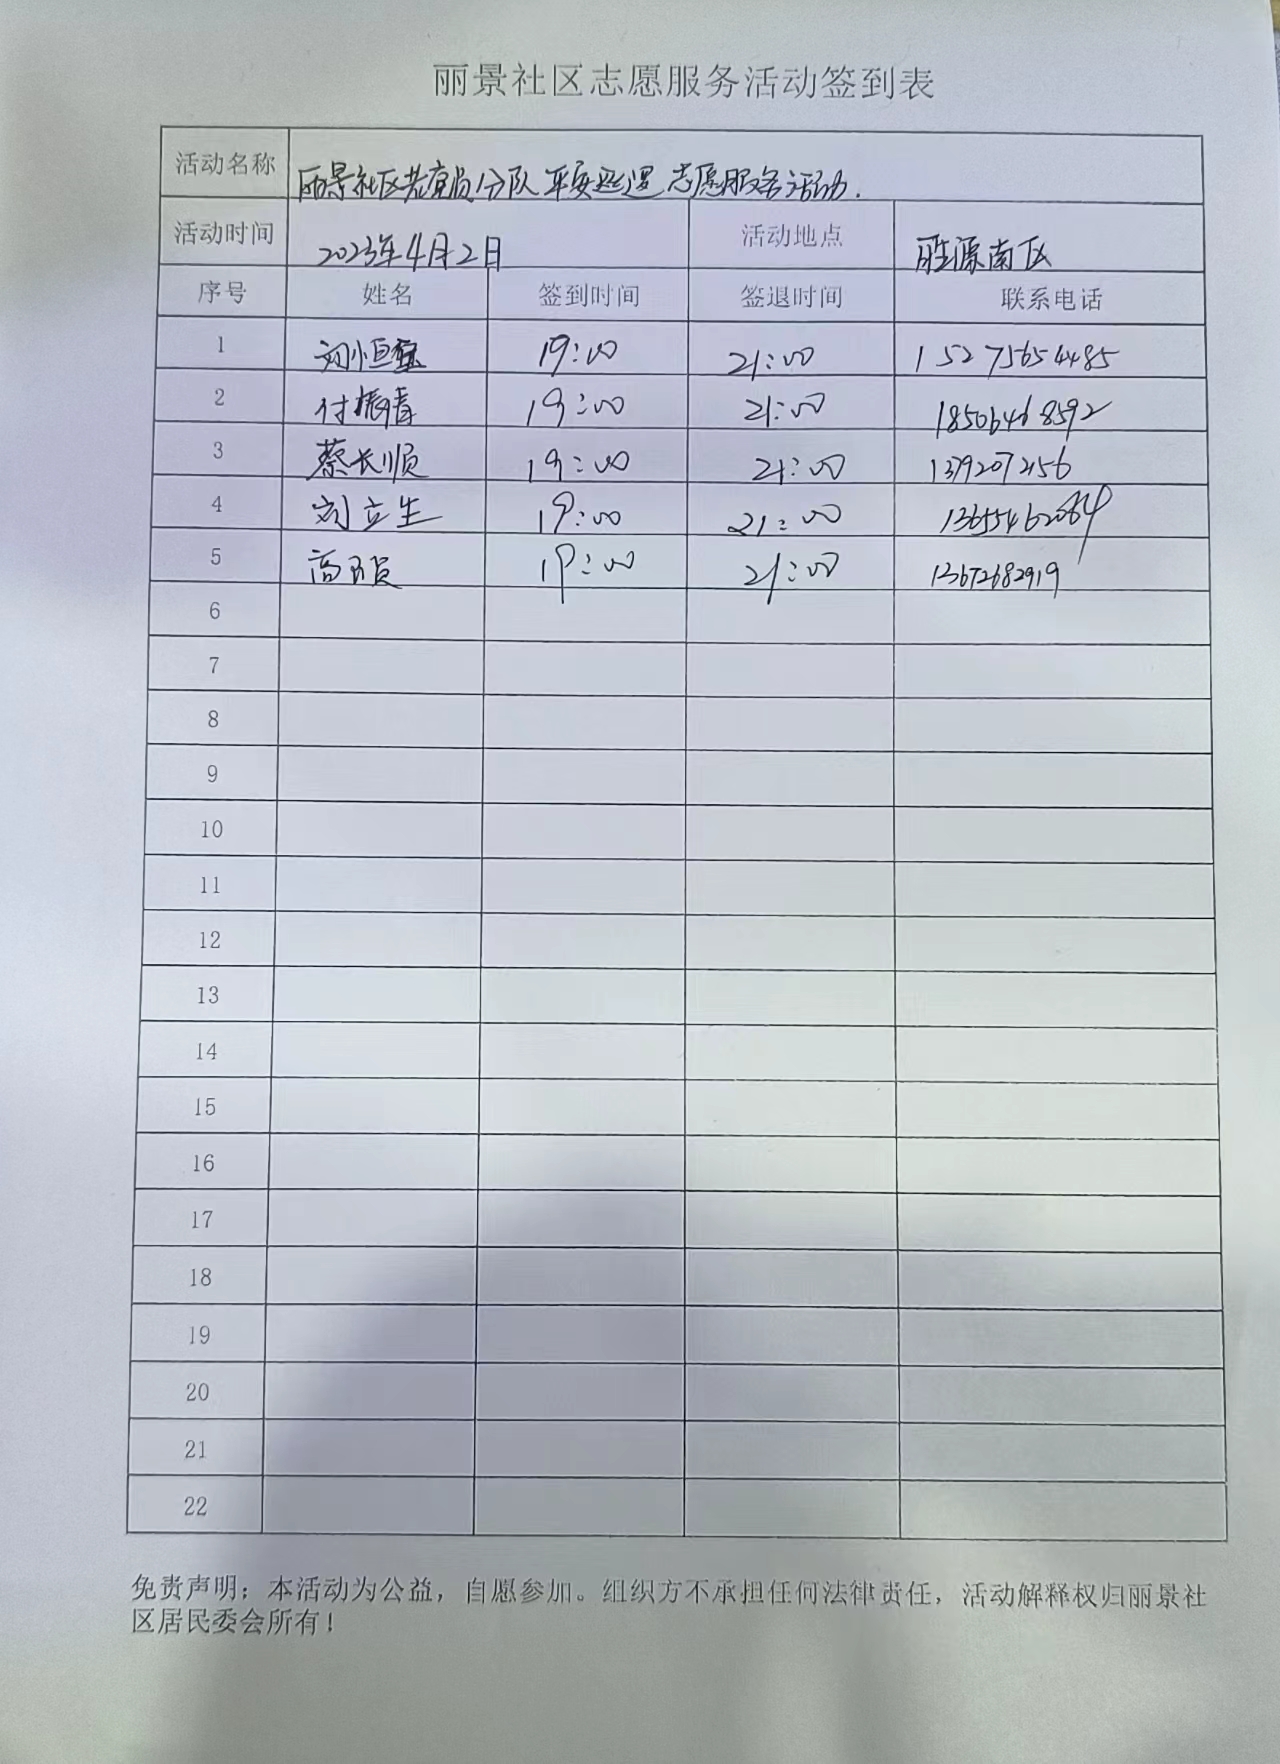 丽景社区志愿服务活动签到表
活动名称 丽景社区老党员分队平安巡逻志愿服务活动.
活动时间 2023年4月2日 活动地点 胜源南区
序号 姓名 签到时间 签退时间 联系电话
1 刘恒 19:00 21:00 15275654485
2 付振青 19:00 21:00 18506468592
3 蔡长顺 19:00 21:00
4 刘立生 19:00 21:00
5 高 19:00 21:00 13672682919
6
7
8
9
10
11
12
13
14
15
16
17
18
19
20
21
22
免责声明：本活动为公益，自愿参加。组织方不承担任何法律责任，活动解释权归丽景社
区居民委会所有！